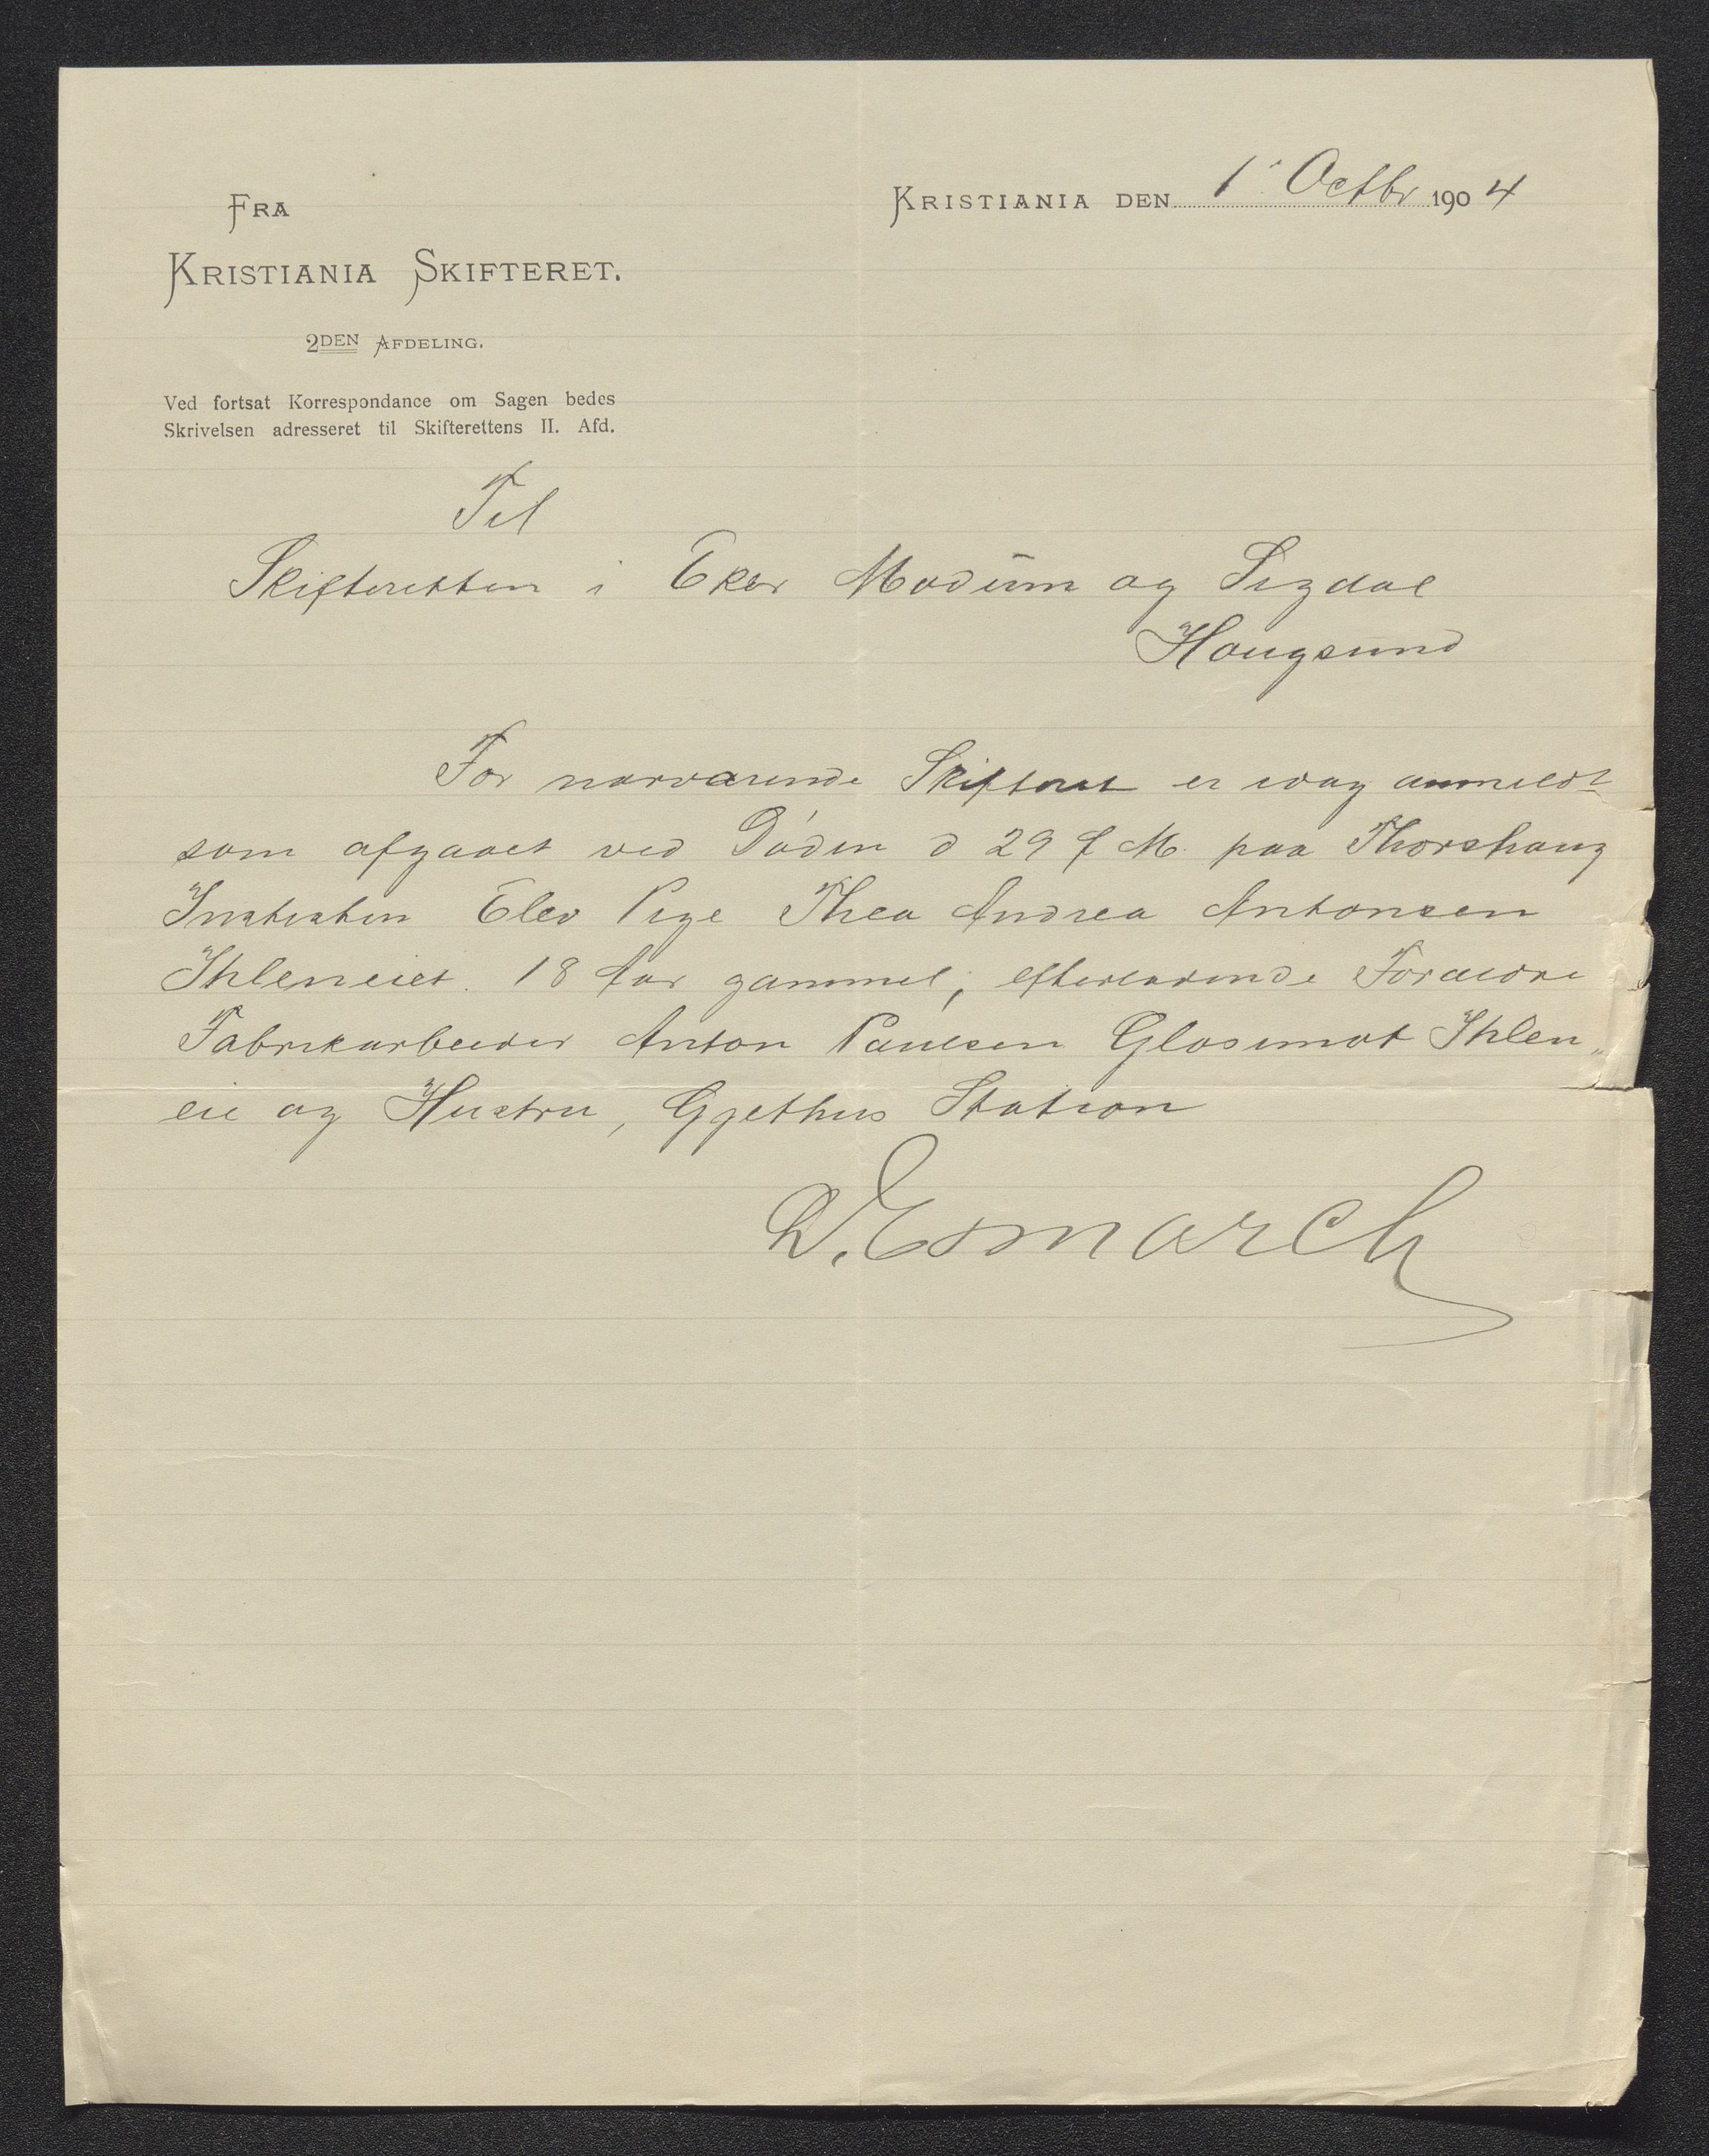 FRA
KRISTIANIA SKIFTERET.
2DEN AFDELING.
Ved fortsat Korrespondance om Sagen bedes
Skrivelsen adresseret til Skifterettens II. Afd.
KRISTIANIA DEN 1' Octbr 1904
Til
Skifteretten i Eker Modum og Sigdal
Hougsund
For nærværende Skifteret er idag anmeldt
som afgaaet ved Døden d 29 f M. paa Thorshaug
Elev Pige Thea Andrea Antonsen
Ihleneiet. 18 Aar gammel, efterladende Forældre
Fabrikarbeider Anton Paulsen Glosimot Ihlen„
eie og Hustru, Gjethus Station
D. Esmarch